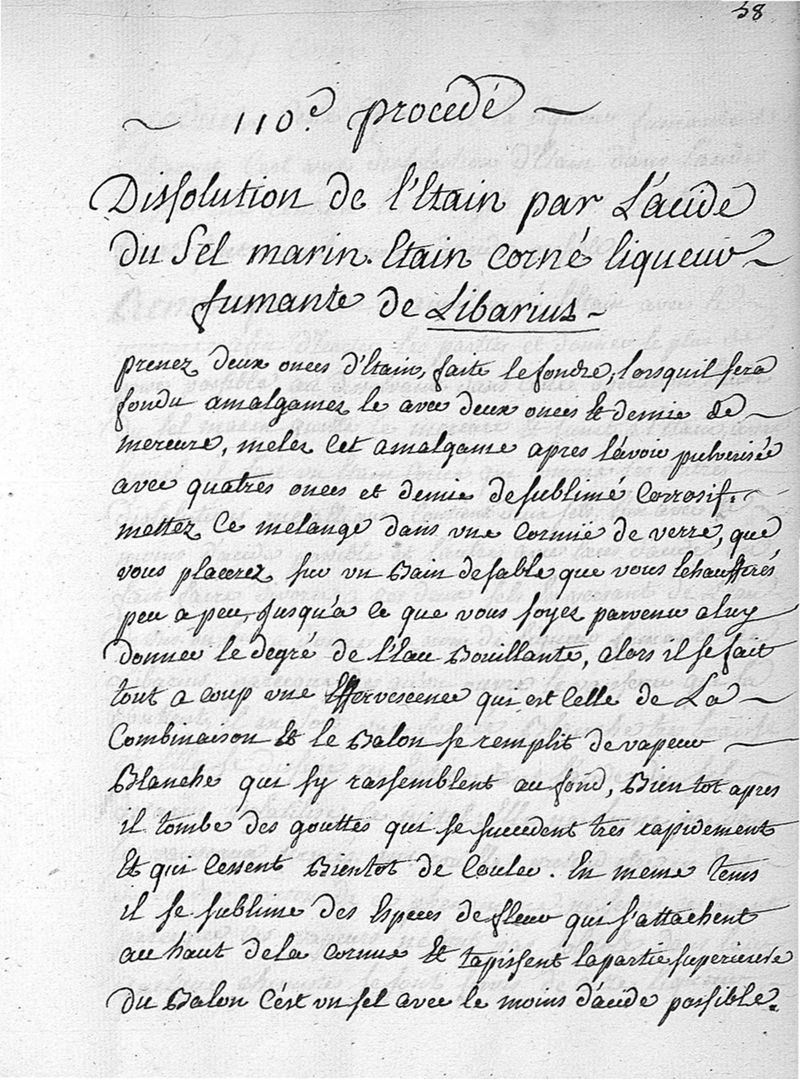 58
~ 110.e procedé ~
Dissolution de l'Etain par L'acide
du Sel marin. Etain corné liqueur ~
fumante de Libarius ~
prenez deux onces d'Etain, faite le fondre, lorsquil sera
fondu amalgamez le avec deux onces et demie de —
mercure, melez cet amalgame apres l'avoir pulverisée
avec quatres onces et demie de sublimé Corrosif. ~
mettez ce melange dans une Cornuë de verre, que
vous placerez sur un Bain de sable que vous Echaufferés
peu a peu, jusqu'a ce que vous soyez parvenu a luy
donner le degré de l'Eau Bouillante, alors il se fait
tout a coup une Effervescence qui est Celle de La —
Combinaison Et le Balon se remplit de vapeur —
Blanche qui sy rassemblent au fond, Bientot apres
il tombe des gouttes qui se succedent tres rapidement
Et qui Cessent Bientot de Couler. En meme tems
il se sublime des Especes de fleur qui s'attachent
au haut de la Cornue Et tapissent la partie superieure
du Balon C'est un sel avec le moins d'acide possible.